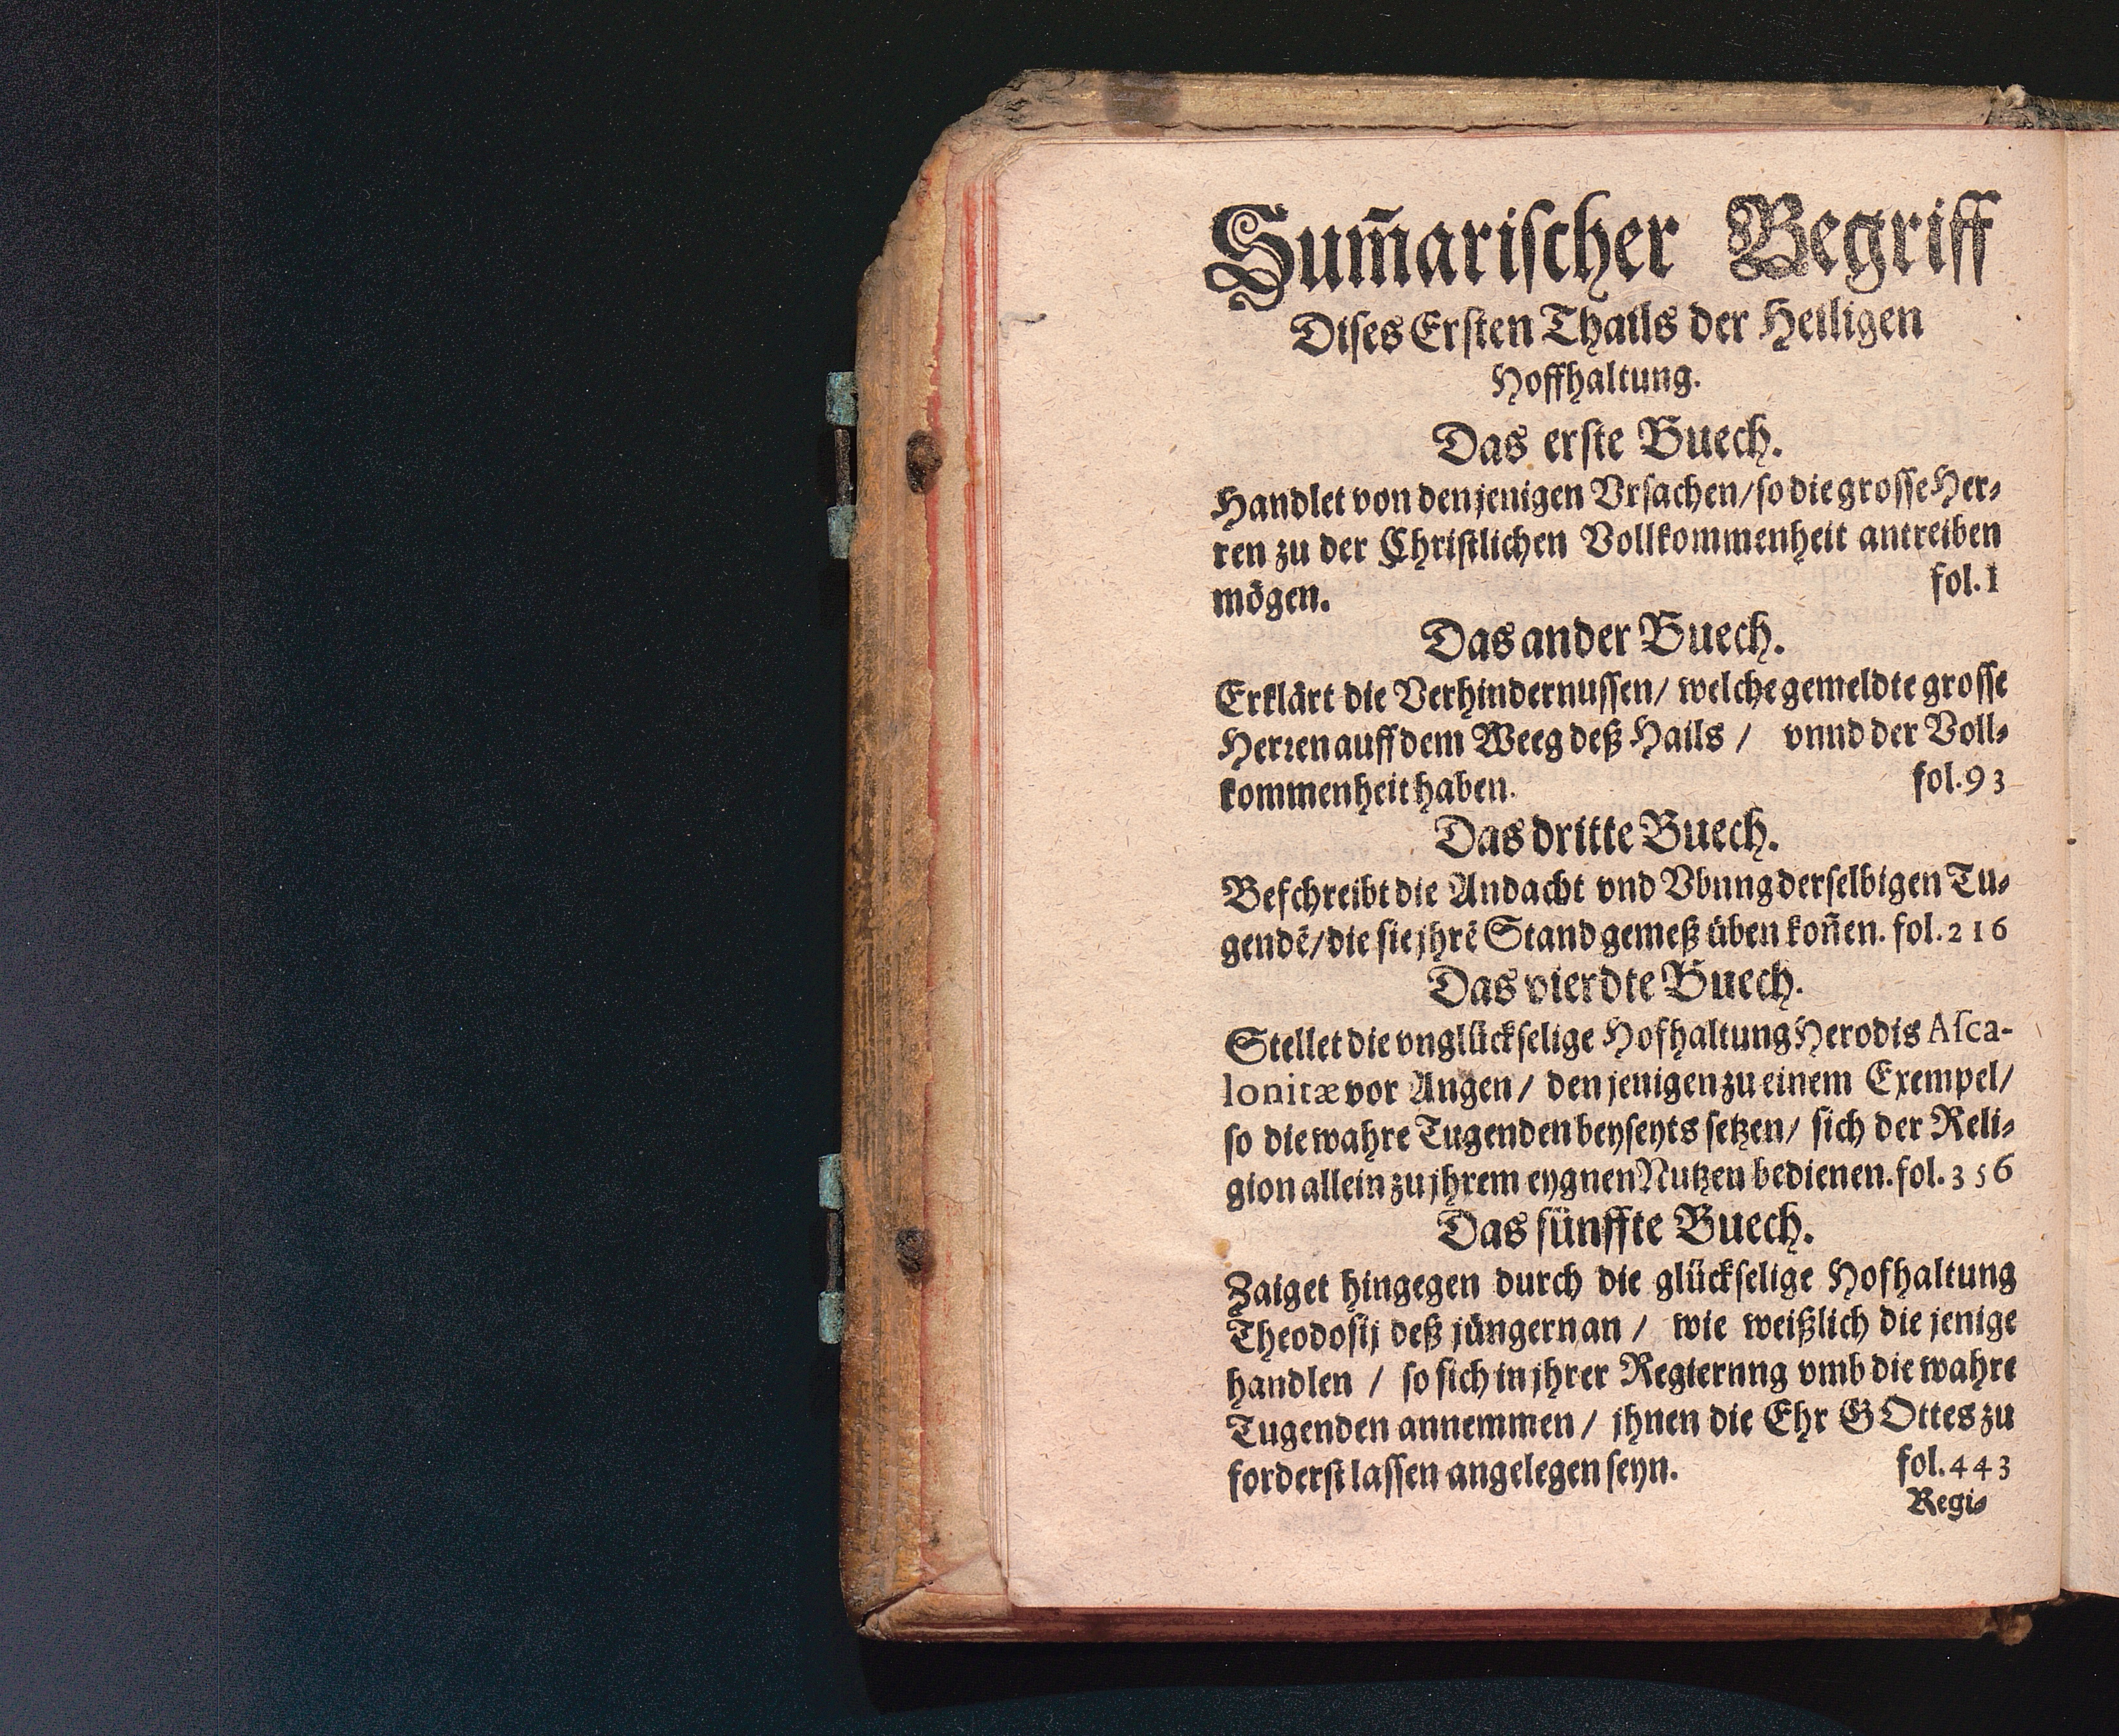 Sum̃ariſcher Begriff
Diſes Erſten Thails der Heiligen
Hoffhaltung.
Das erſte Buech.
Handlet von denjenigen Vrſachen/ ſo die groſſe Her⸗
ren zu der Chriſtlichen Vollkommenheit antreiben
mögen. fol. 1
Das ander Buech.
Erklärt die Verhindernuſſen/ welche gemeldte groſſe
Herꝛen auff dem Weeg deß Hails / vnnd der Voll⸗
kommenheit haben. fol. 93
Das dritte Buech.
Beſchreibt die Andacht vnd Vbung derſelbigen Tu⸗
gendẽ/ die ſie jhrẽ Stand gemeß üben koñen. fol. 216
Das vierdte Buech.
Stellet die vnglückſelige Hofhaltung Herodis Aſca-
lonitæ vor Angen/ den jenigen zu einem Exempel/
ſo die wahre Tugenden beyſeyts ſetzen/ ſich der Reli⸗
gion allein zu jhrem eygnen Nutzen bedienen. fol. 356
Das fünffte Buech.
Zaiget hingegen durch die glückſelige Hofhaltung
Theodoſij deß jüngern an / wie weißlich die jenige
handlen / ſo ſich in jhrer Regiernng vmb die wahre
Tugenden annemmen / jhnen die Ehr GOttes zu
forderſt laſſen angelegen ſeyn. fol. 443
Regi⸗